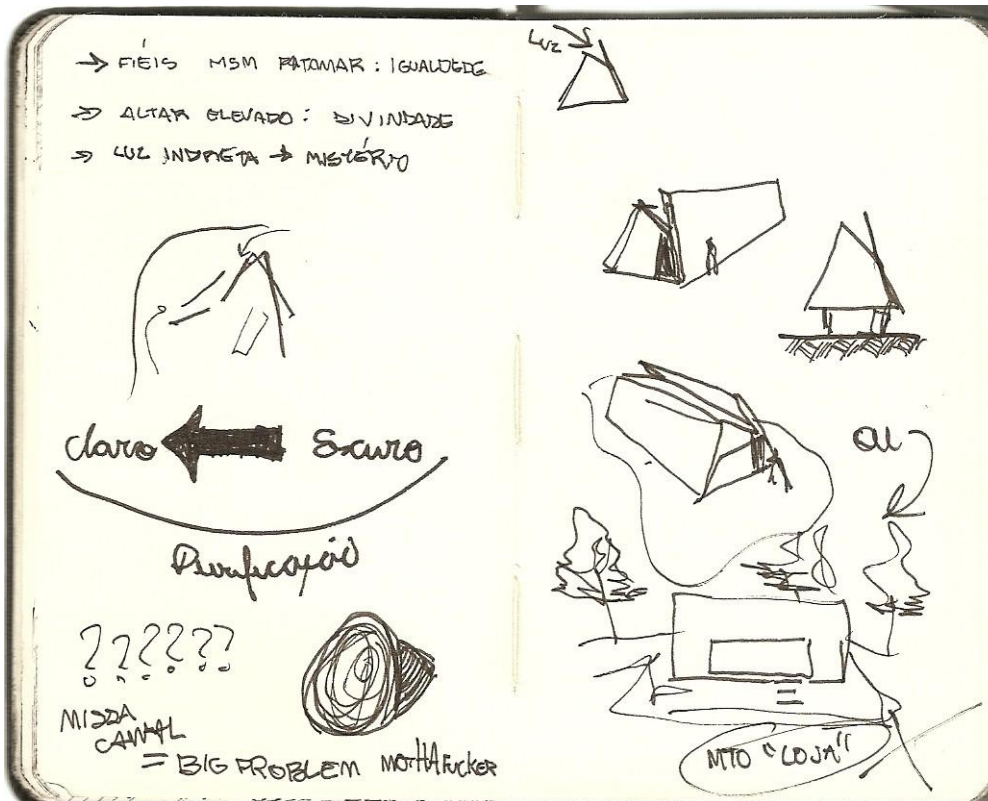 → FIÉIS MSM PATAMAR : IGUALDADE
→ ALTAR ELEVADO : DIVINDADE
→ LUZ INDIRETA → MISTÉRIO
claro
Escuro
Purificação
??????
MISSA
= BIG PROBLEM MOTHAFUCKER
LUZ
OU
MTO "LOJA"